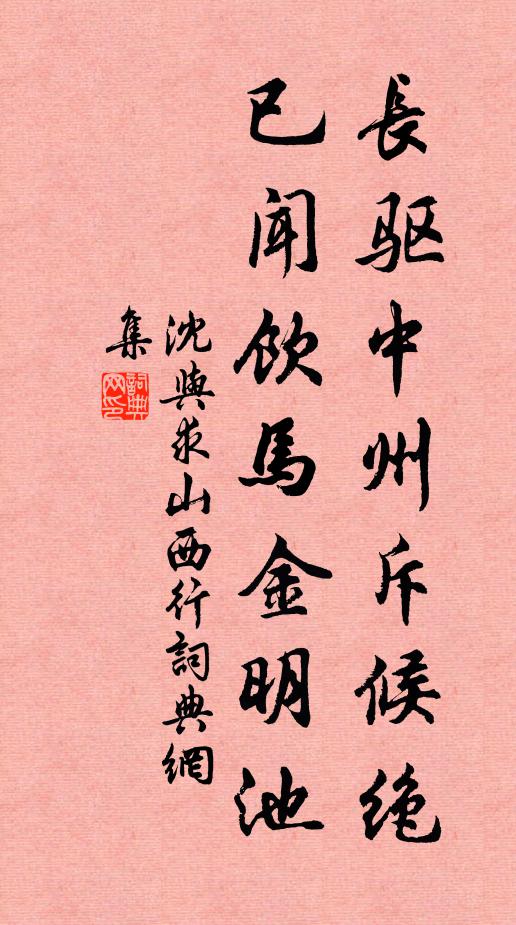 長驱中州斥候绝
已闻飲馬金明池
沈與求山西行詞典網
集
詞典網印